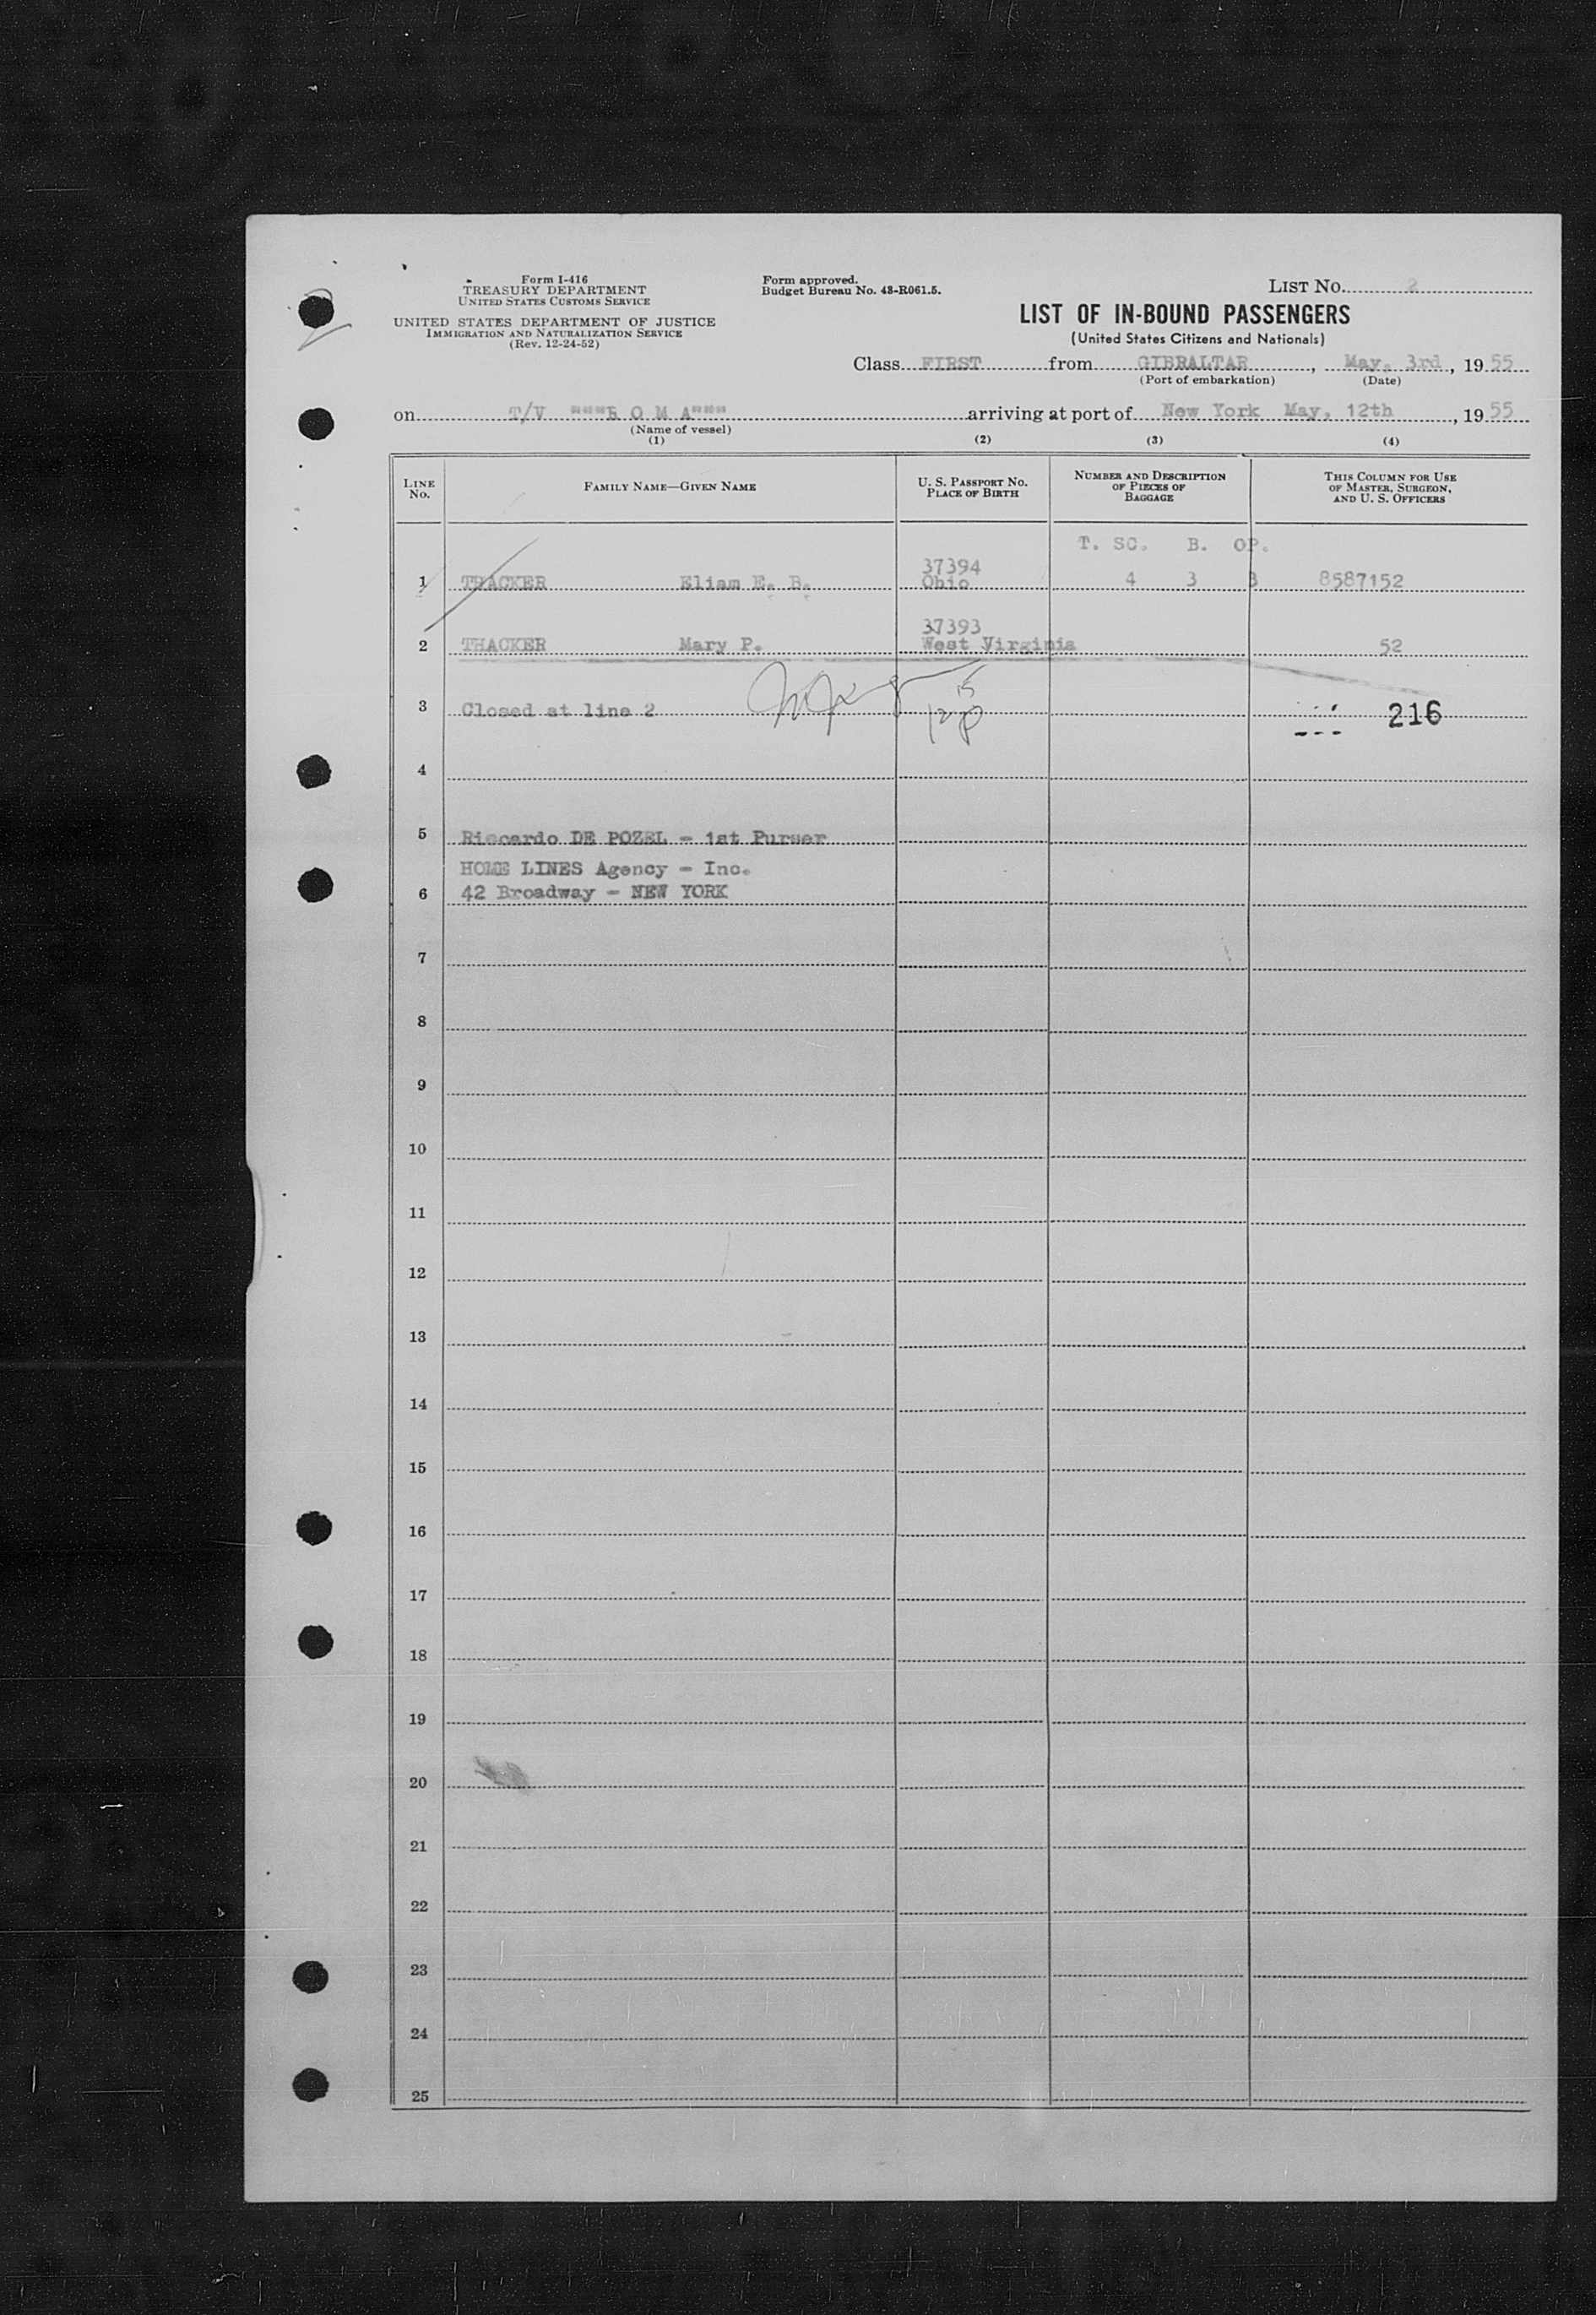 Form I-416
TREASURY DEPARTMENT
UNITED STATES CUSTOMS SERVICE
UNITED STATES DEPARTMENT OF JUSTICE
IMMIGRATION AND NATURALIZATION SERVICE
(Rev. 12-24-52)
Form approved.
Budget Bureau No. 43-R061.5.
LIST NO. 2
LIST OF IN-BOUND PASSENGERS
(United States Citizens and Nationals)
Class FIRST from GIBRALTAR, May. 3rd, 1955
(Port of embarkation) (Date)
on T/V """R O M A""" arriving at port of New York May, 12th, 1955
(Name of vessel)
(1) (2) (3) (4)
LINE NO. FAMILY NAME—GIVEN NAME U. S. PASSPORT NO. PLACE OF BIRTH NUMBER AND DESCRIPTION OF PIECES OF BAGGAGE THIS COLUMN FOR USE OF MASTER, SURGEON, AND U. S. OFFICERS
T. SC. B. OP.
37394
1 TRACKER Eliam E. B. Ohio 4 3 3 8587152
37393
2 THACKER Mary P. West Virginia 52
3 Closed at line 2 216
4
5 Riccardo DE POZEL - 1st Purser
HOME LINES Agency - Inc.
6 42 Broadway - NEW YORK
7
8
9
10
11
12
13
14
15
16
17
18
19
20
21
22
23
24
25